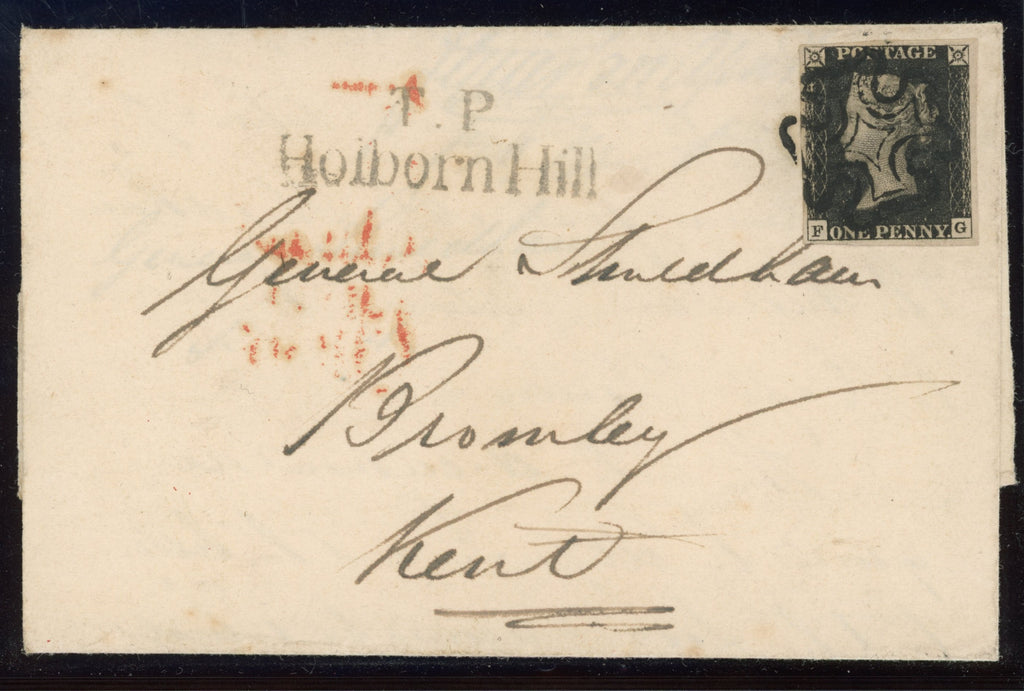 POSTAGE
T.P
Holborn Hill
F ONE PENNY G
General Shuldham
Bromley
Kent